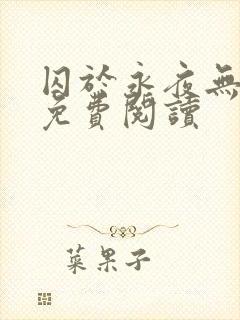 囚於永夜無
免費閱讀
菜果子